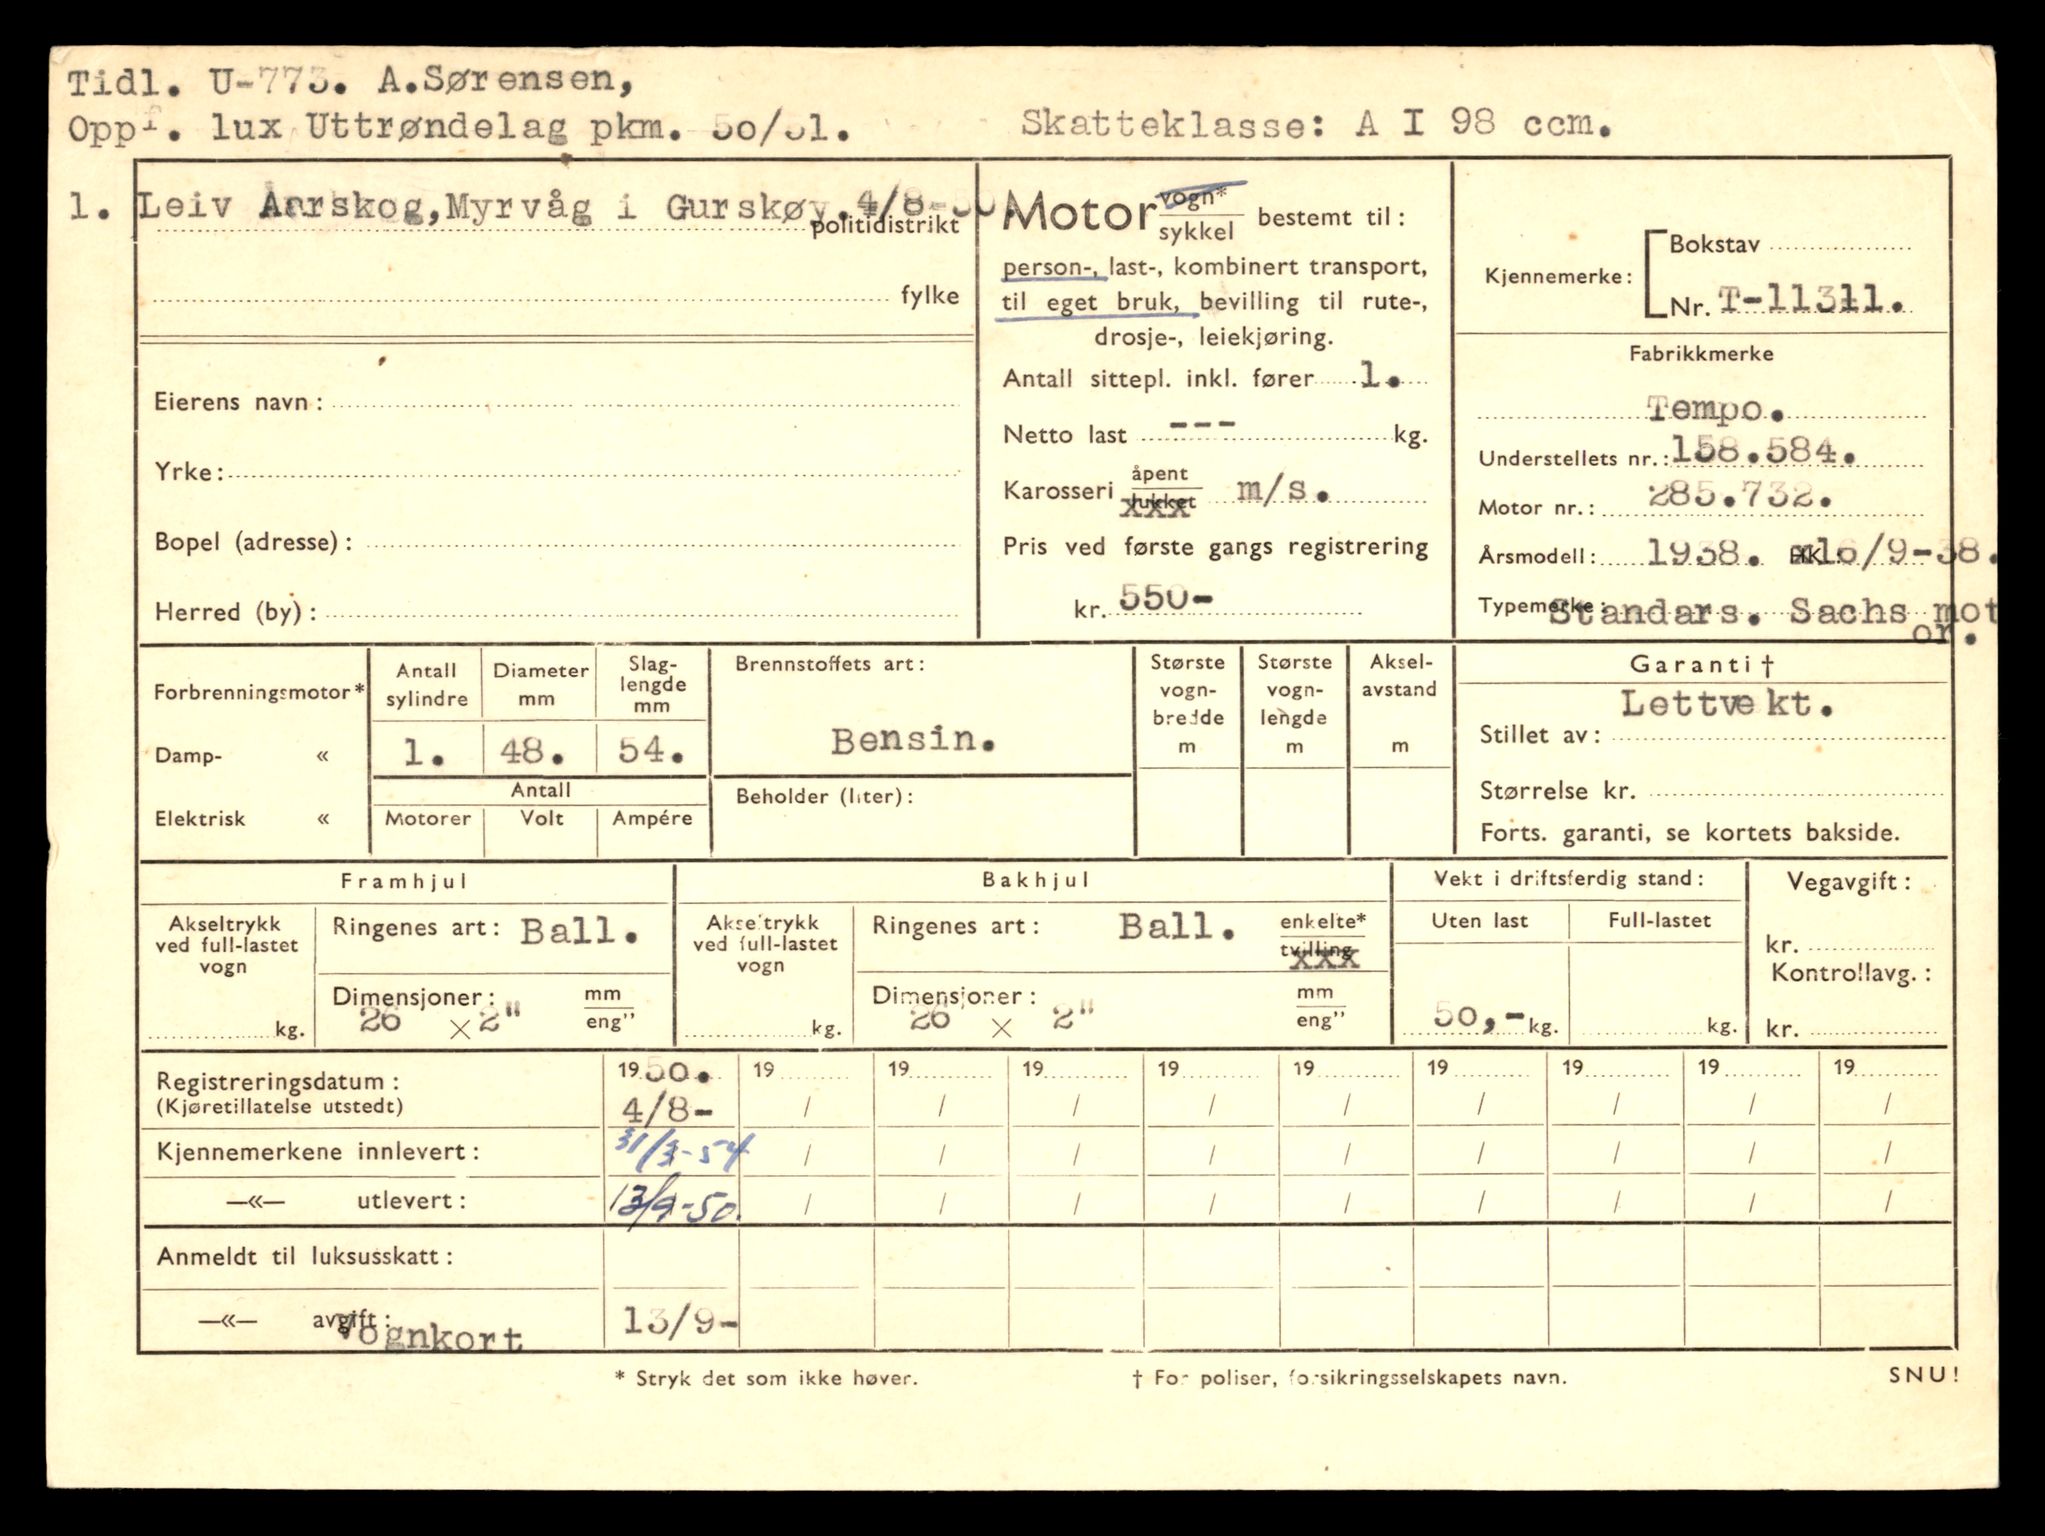 Tidl. U-773. A.Sørensen,
Oppf. lux Uttrøndelag pkm. 50/51.
Skatteklasse: A I 98 ccm.
1. Leiv Aarskog, Myrvåg i Gurskøy. 4/8-50.
politidistrikt
fylke
Eierens navn:
Yrke:
Bopel (adresse):
Herred (by):
Motor vogn* / sykkel bestemt til:
person-, last-, kombinert transport,
til eget bruk, bevilling til rute-,
drosje-, leiekjøring.
Antall sittepl. inkl. fører 1.
Netto last --- kg.
Karosseri åpent / lukket xxx m/s.
Pris ved første gangs registrering
kr. 550-
Kjennemerke: Bokstav
Nr. T-11311.
Fabrikkmerke
Tempo.
Understellets nr.: 158.584.
Motor nr.: 285.732.
Årsmodell: 1938. HK.: 16/9-38.
Typemerke: Standars. Sachs mot
or.
Forbrenningsmotor*
Damp- «
Elektrisk «
Antall sylindre
1.
Diameter mm
48.
Slag-lengde mm
54.
Antall
Motorer Volt Ampére
Brennstoffets art:
Bensin.
Beholder (liter):
Største vogn-bredde m
Største vogn-lengde m
Aksel-avstand m
Garanti †
Lettvekt.
Stillet av:
Størrelse kr.
Forts. garanti, se kortets bakside.
Framhjul
Akseltrykk ved full-lastet vogn
kg.
Ringenes art: Ball.
Dimensjoner: mm / eng"
26 × 2"
Bakhjul
Akseltrykk ved full-lastet vogn
kg.
Ringenes art: Ball. enkelte* / tvilling xxx
Dimensjoner: mm / eng"
26 × 2"
Vekt i driftsferdig stand:
Uten last Full-lastet
50,- kg. kg.
Vegavgift:
kr.
Kontrollavg.:
kr.
Registreringsdatum: 1950. 19 19 19 19 19 19 19 19 19
(Kjøretillatelse utstedt) 4/8- / / / / / / / / /
Kjennemerkene innlevert: 31/3-54 / / / / / / / / /
—«— utlevert: 13/9-50. / / / / / / / / /
Anmeldt til luksusskatt:
—«— avgift: 13/9-
Vognkort
* Stryk det som ikke høver.
† For poliser, forsikringsselskapets navn.
SNU!